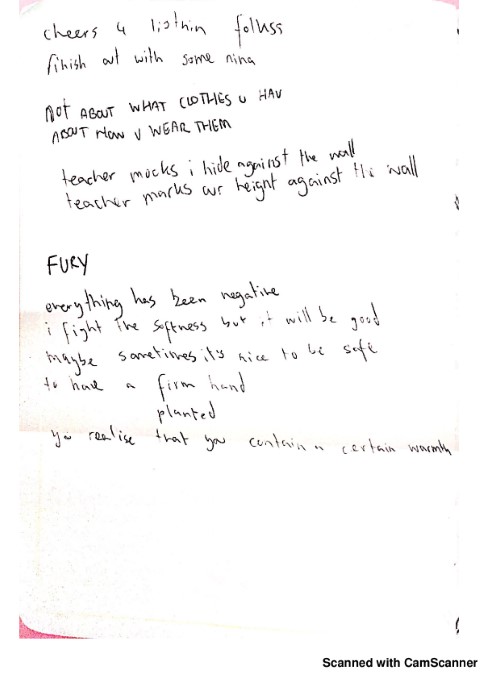 cheers 4 listnin folkss
finish out with some nina
NOT ABOUT WHAT CLOTHES U HAV
ABOUT HOW U WEAR THEM
teacher mocks i hide against the wall
teacher marks our height against the wall
FURY
everything has been negative
i fight the softness but it will be good
maybe sometimes it's nice to be safe
to have a firm hand
planted
you realise that you contain a certain warmth
Scanned with CamScanner